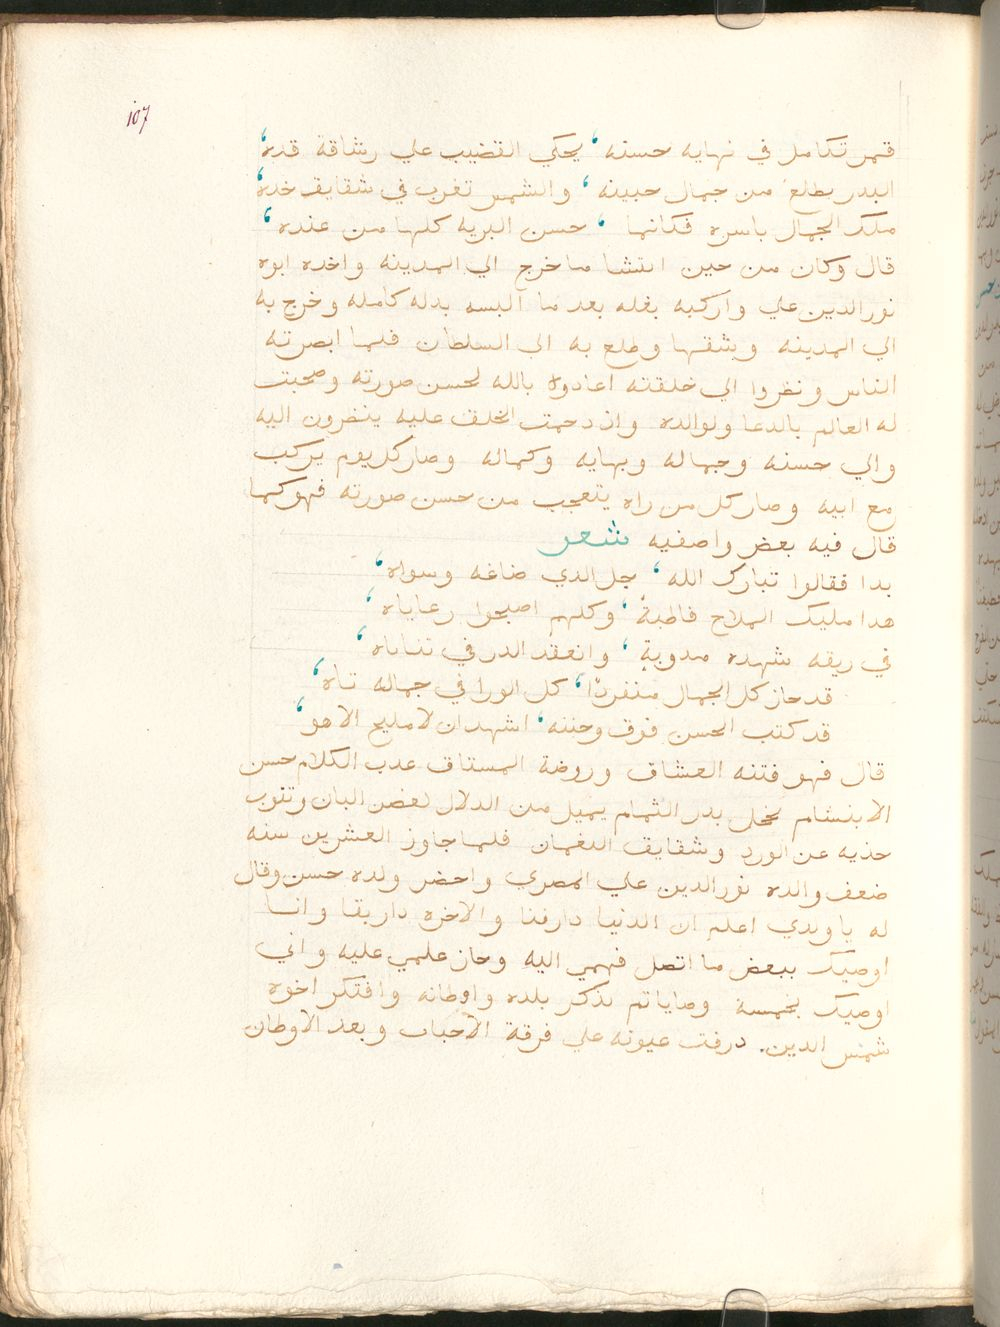 107
قمر تكامل في نهايه حسنه ، يحكي القضيب علي رشاقة قده ،
البدر يطلع من جمال جبينه ، والشمس تغرب في شقايق خده ،
ملك الجمال باسره فكانما ، حسن البريه كلها من عنده ،
قال وكان من حين انتشا ما خرج الي المدينه واخده ابوه
نور الدين علي واركبه بغله بعد ما البسه بدله كامله وخرج به
الي المدينه وبشقها وطلع به الى السلطان فلما ابصرته
الناس ونضروا الى خلقته اعادوه بالله لحسن صورته وضجت
له العالم بالدعا ولوالده وازدحمت الخلق عليه ينضرون اليه
والي حسنه وجماله وبهايه وكماله وصار كل يوم يركب
مع ابيه وصار كل من راه يتعجب من حسن صورته فهو كما
قال فيه بعض واصفيه شعر
بدا فقالوا تبارك الله ، جل الدي صاغه وسواه ،
هدا مليك الملاح قاطبة ، وكلهم اصبحوا رعاياه ،
في ريقه شهده مدوبة ، وانعقد الدر في تناياه ،
قد حاز كل الجمال منفردًا ، كل الورا في جماله تاه ،
قد كتب الحسن فوق وجنته ، اشهد ان لا مليح الا هو ،
قال فهو فتنه العشاق وروضة المستاق عدب الكلام حسن
الابتسام يخجل بدر التمام يميل من الدلال لغصن البان وتنوب
خديه عن الورد وشقايق النعمان فلما جاوز العشرين سنه
ضعف والده نور الدين علي المصري واحضر ولده حسن وقال
له يا ولدي اعلم ان الدنيا دار فنا والاخره دار بقا وانا
اوصيك ببعض ما اتصل فهمي اليه وحاز علمي عليه واني
اوصيك بخمسة وصايا تم تذكر بلده واوطانه وافتكر اخوه
شمس الدين. درفت عيونه علي فرقة الاحباب وبعد الاوطان